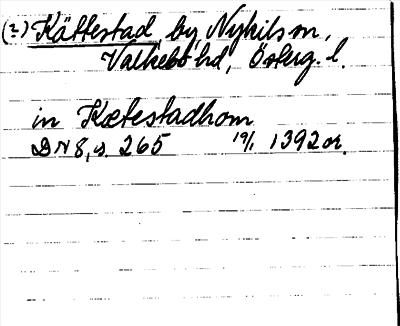 (?) Kättestad by, Nykils sn,
Valkebo hd, Österg. l.
in Kætestadhom
DN 8, s. 265 19/1 1392 or.